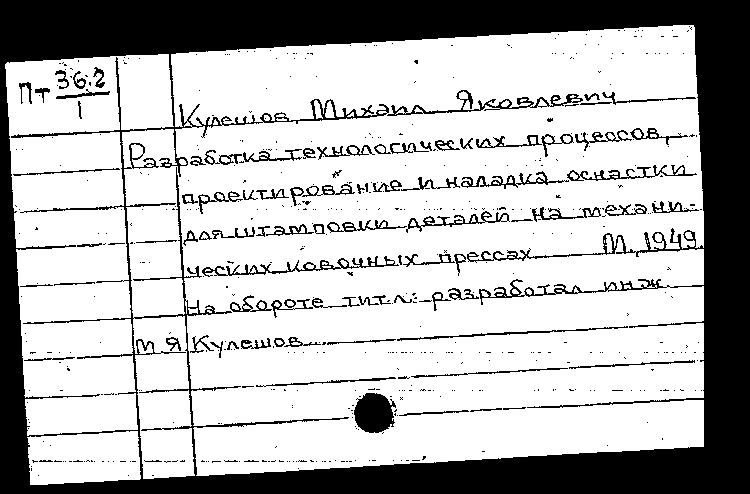 Пт 36.2
1
Кулешов, Михаил Яковлевич
Разработка технологических процессов,
проектирование и наладка оснастки
для штамповки деталей на механи-
ческих ковочных прессах. М., 1949.
На обороте титл.: разработал инж.
М.Я. Кулешов.